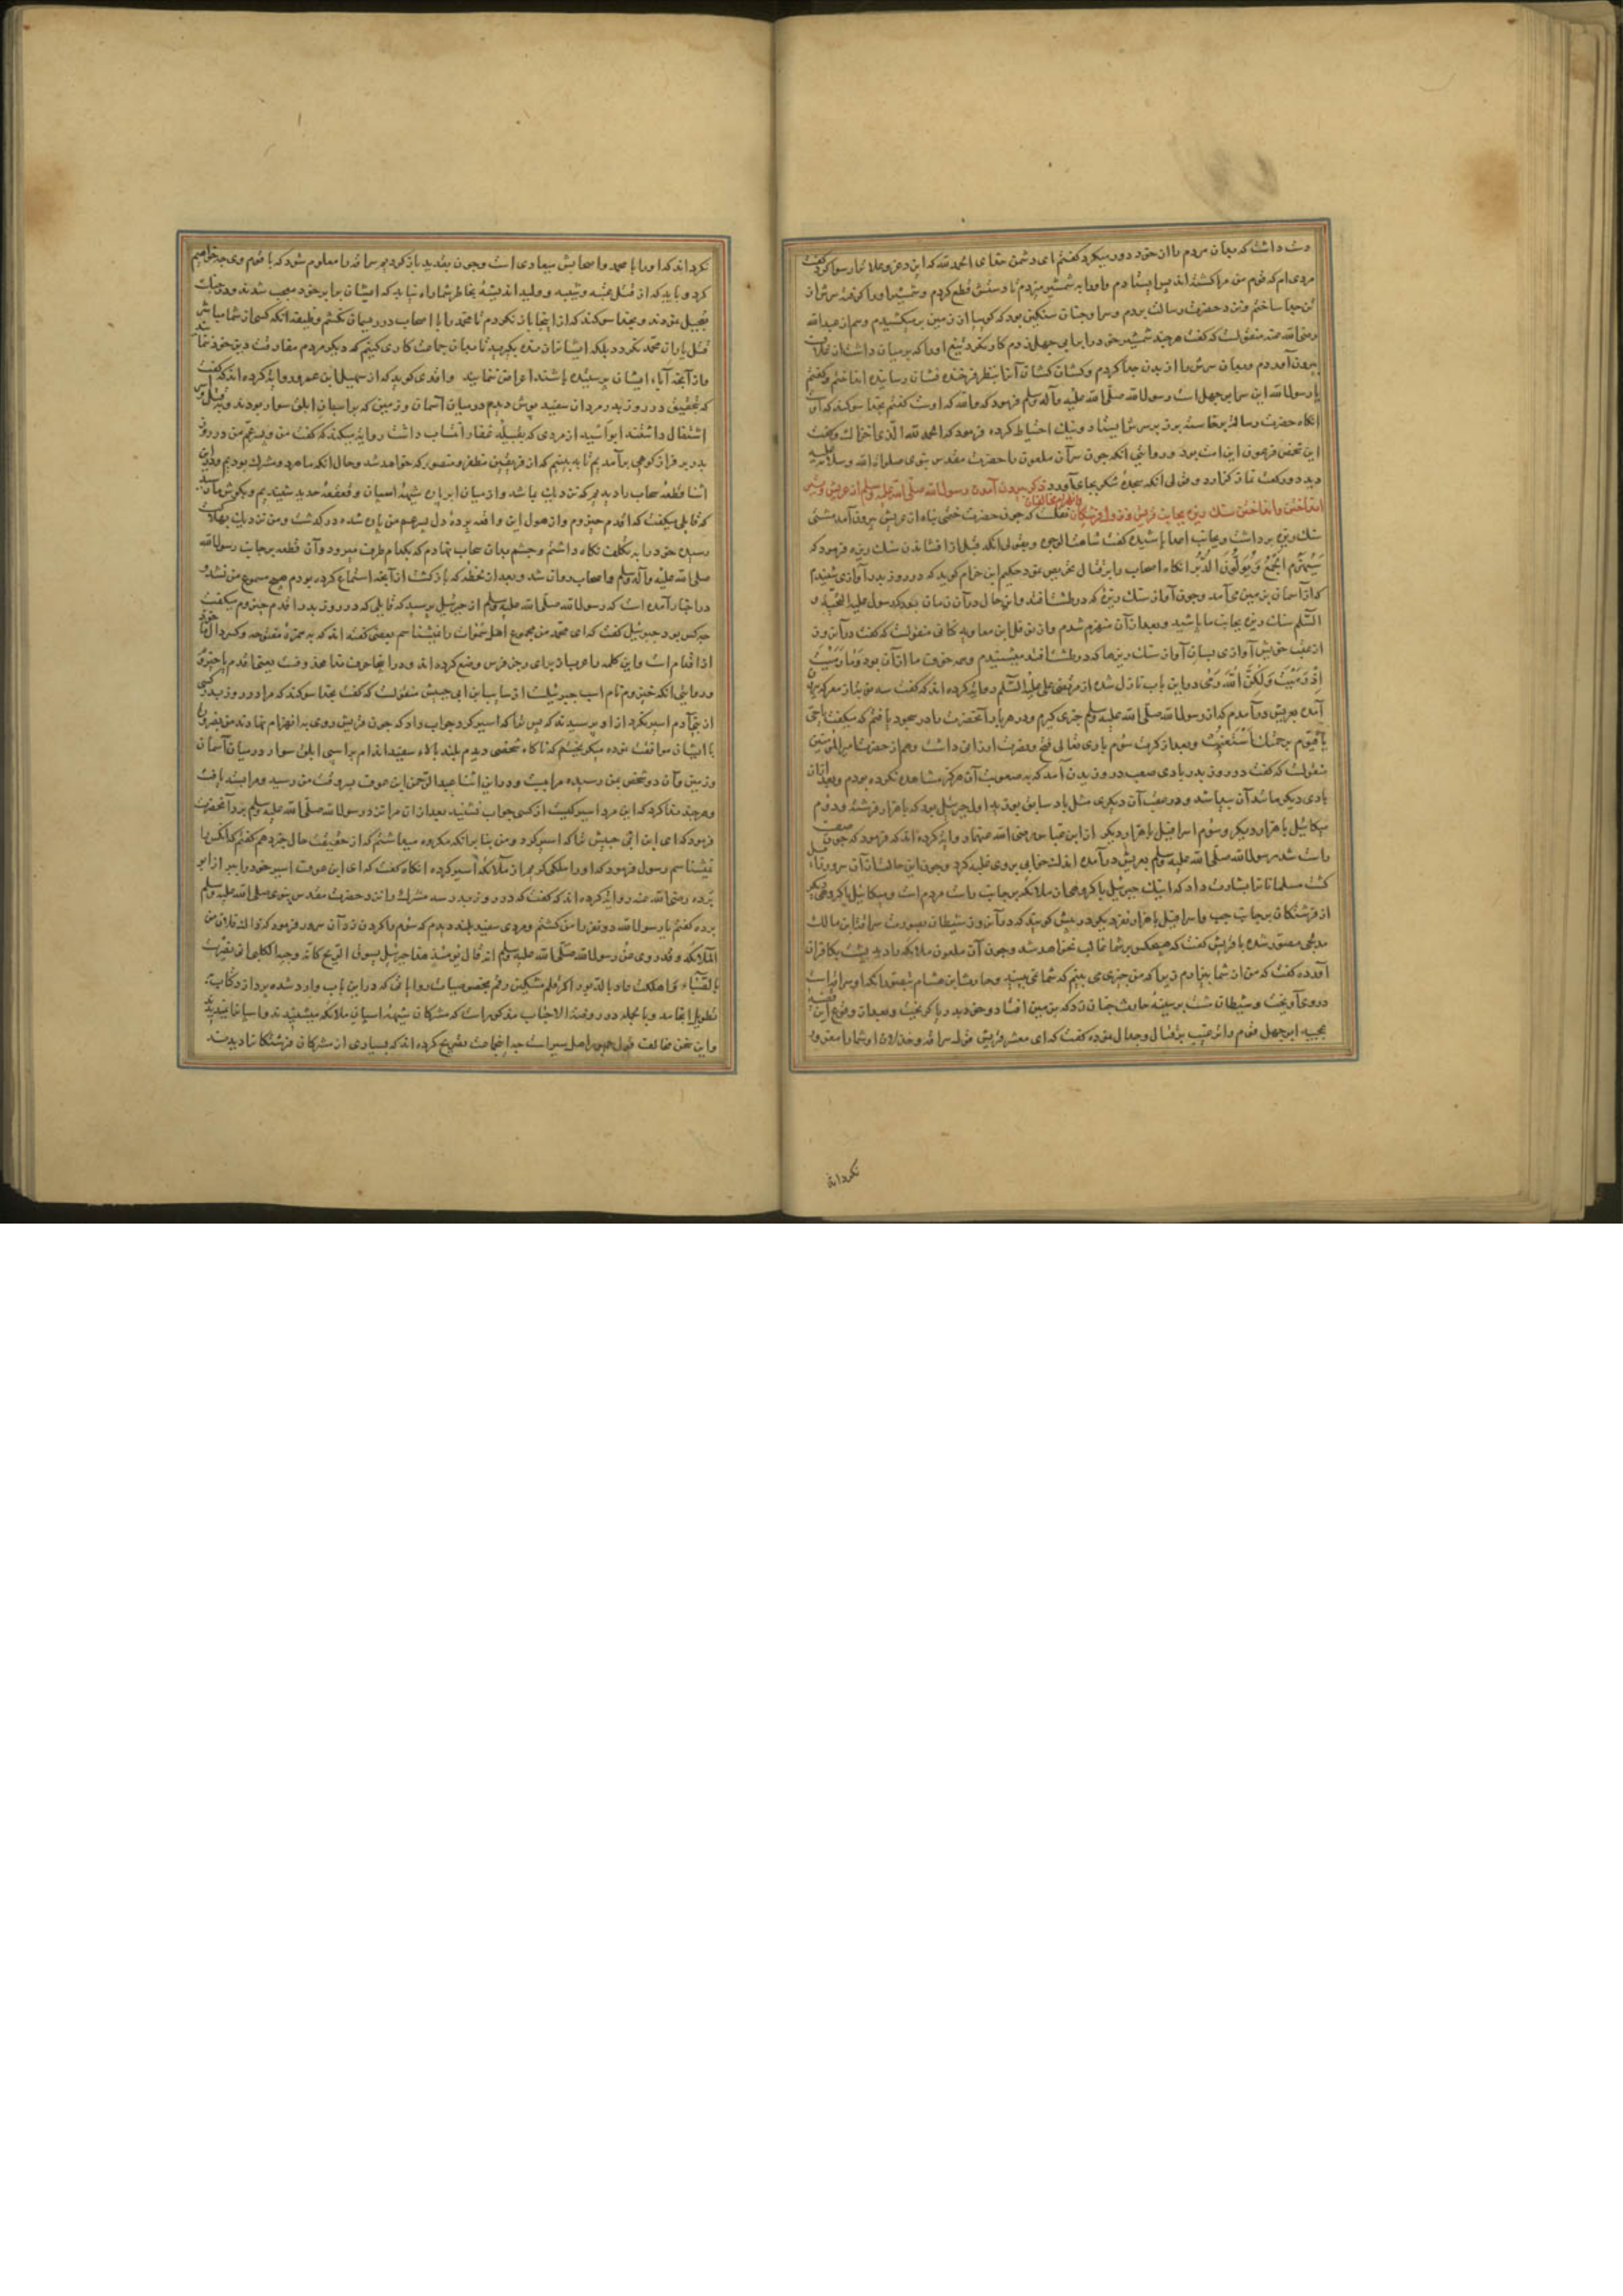 دست داشت که میان مردم را از خود دور میکرد گفتم ای دشمن خدای الحمد لله که این دعز وعلا ترا رسوا کرد گفت
مردی‌ام که قوم من مرا کشته‌اند پس ایستادم و او را به شمشیر میزدم تا دستش قطع کردم و شمشیر او را گرفته سرش از
تن جدا ساختم و نزد حضرت رسالت بردم و سر او چنان سنگین بود که گویا از زمین بر میکشیدم و هم از عبدالله
رضی الله عنه منقولست که گفت هر چند شمشیر خود را بر ابی جهل زدم کار نکرد تیغ او را که بر میان داشت از غلاف
بیرون آوردم و میان سرش را از بدن جدا کردم و کشان کشان آنرا بنظر فرخنده نشان رسانیده انداختم و گفتم
یا رسول الله این سر ابو جهل است رسول الله صلی الله علیه وآله وسلم فرمود که والله که اوست گفتم بخدا سوگند که اوست
آنگاه حضرت رسالت برخاسته برو بر سرش ایستاد و نیک احتیاط کرده فرمود که الحمد لله الذی اخزاک و گفت
این شخص فرعون این امت بود و روایتی آنکه چون سر آن ملعون را حضرت مقدس نبوی صلوات الله وسلامه علیه
دید دو رکعت نماز گزارد و قولی آنکه سجده شکر بجای آورد ذکر بیرون آمدن رسول الله صلی الله علیه وسلم از عریش و
انداختن سنک ریزه بجانب قریش و نزول فرشتگان و انهزام مخالفان نقلست که چون حضرت ختمی پناه از عریش بیرون آمد مشتی
سنک ریزه برداشت و بجانب اعدا پاشیده گفت شاهت الوجوه و بقولی آنکه قبل از افشاندن سنک ریزه فرمود که
سَیُهْزَمُ الْجَمْعُ وَیُوَلُّونَ الدُّبُرَ آنکاه اصحاب را بر قتال تحریص نمود حکیم ابن حزام گوید که در روز بدر آوازی شنیدم
که از آسمان بزمین می‌آمد و چون آواز سنک ریزه که در طشت افتد و این حال در آن زمان بود که رسول علیه التحیة و
السلام سنک ریزه بجانب ما پاشید و بعد از آن منهزم شدم و از نوفل ابن معاویه کنانی منقولست که گفت در آن روز
از عقب خویش آوازی بسان آواز سنک ریزها که در طشت افتد میشنیدم و همه خوف ما از آن بود وَمَا رَمَیْتَ
إِذْ رَمَیْتَ وَلَکِنَّ اللَّهَ رَمَی در این باب نازل شده از مرتضی علی علیه السلام روایة کرده اند که گفت سه نوبت از معرکه بیرون
آمده بعریش در آمدم که از رسول الله صلی الله علیه وسلم خبری گیرم و در هر بار آنحضرت را در سجود یافتم که میگفت یا حی
یا قیوم برحمتک استغیث و بعد از کرت سوم باری تعالی فتح و نصرت ارزانی داشت و هم از حضرت امیر المؤمنین
منقولست که گفت در روز بدر بادی صعب در وزیدن آمد که به صعوبت آن هرگز مشاهده نکرده بودم و بعد از آن
بادی دیگر مانند آن پیدا شد و در عقب آن دیگری مثل باد سابق بوزید اول جبرئیل بود که با هزار فرشته و دوم
میکائیل با هزار دیگر و سوم اسرافیل با هزار دیگر از ابن عباس رضی الله عنهما روایة کرده اند که فرمود که چون صف
راست شد رسول الله صلی الله علیه وسلم بعریش در آمده اندک خوابی بر وی غلبه کرد و چون این حالت از آن سرور زایل
گشت مسلمانانرا بشارت داد که اینک جبرئیل با گروهی از ملائکه بر جانب راست مردم است و میکائیل با گروهی دیگر
از فرشتکان بر جانب چپ و اسرافیل با هزار نفر دیگر در پیش گویند که در آن روز شیطان بصورت سراقة ابن مالک
مدلجی مصور شده با قریش گفت که هیچکس بر شما غالب نخواهد شد و چون آن ملعون ملائکه را دید پشت بکافران
آورده گفت که من از شما بیزارم زیرا که من چیزی می بینم که شما نمی بینید و حارث ابن هشام بتصور آنکه او سراقه است
در وی آویخت و شیطان دست بر سینه حارث چنان زد که بزمین افتاد و خود بدریا گریخت و بعد از وقوع این قضیه
عجیبه ابو جهل قوم را ترغیب بر قتال و جدال نموده گفت که ای معشر قریش قول سراقه و خذلان او شما را مغرور
نگرداند
نگرداند که او را با محمد و اصحابش میعادی است و چون بقدید باز گردیم سراقه را معلوم شود که با قوم وی چه خواهیم
کرد و باید که از قتل عتبه و شیبه و ولید اندیشه بخاطر شما راه نیابد که ایشان برابر خود معجب شدند و در حرب
تعجیل نمودند و بخدا سوگند که از اینجا باز نگردم تا محمد را با اصحاب در ریسمان نکشم وظیفه آنکه کسی از شما مباشر
قتل یاران محمد نگردد بلکه ایشانرا بند بگیرید تا با میان جماعت کاری کنیم که دیگر مردم مفارقت دین خود ننمایند
و از آنچه آباء ایشان پرستیده باشند اعراض ننمایند واقدی گوید که از سهیل ابن عمرو روایة کرده اند که گفت
که بتحقیق در روز بدر مردان سفید پوش دیدم در میان آسمان و زمین که بر اسپان ابلق سوار بودند و بقتل و اسر
اشتغال داشتند ابو اسید از مردی که بقبیلة غفار انتساب داشت روایة میکند که گفت من و پسر عم من در روز
بدر بر فراز کوهی بر آمدیم تا به بینیم که از فریقین مظفر و منصور که خواهد شد و حال آنکه ما هر دو مشرک بودیم و در این
اثنا قطعه سحاب را دیدیم که نزدیک ما شد و از میان ابر بان شیهه اسپان و قعقعه حدید شنیدیم و بگوش ما رسید
که قایلی میگفت که اقدم حیزوم و از هول این واقعه پرده دل پسر عم من پاره شده در گذشت و من نزدیک بهلاکت
رسیده خود را به تکلف نگاه داشتم و چشم بدان سحاب نهادم که بکدام طرف میرود و آن قطعه بر جانب رسول الله
صلی الله علیه وآله وسلم و اصحاب روان شد و بعد از لحظه که بازگشت از آنچه استماع کرده بودم هیچ مسموع من نشد و
در اخبار آمده است که رسول الله صلی الله علیه وسلم از جبرئیل پرسید که قایلی که در روز بدر اقدم حیزوم میگفت
چه کس بود جبرئیل گفت که ای محمد من مجموع اهل سموات را نمیشناسم بعضی گفته اند که به همزه مفتوحه و کسر دال خود
از اقدام است و این کلمه را عربان برای زجر فرس وضع کرده اند و در اینجا حرف ندا محذوفست یعنی اقدم یا حیزوم
و روایتی آنکه حیزوم نام اسپ جبرئیلست از سایب ابن ابی حبیش منقولست که گفت بخدا سوگند که مرا در روز بدر کسی
از بنی آدم اسیر نکرد از او پرسیدند که پس ترا که اسیر کرد جواب داد که چون قریش روی به انهزام نهادند من نیز
با ایشان موافقت نموده میگریختم که ناگاه شخصی دیدم بلند بالاء سفید اندام بر اسپی ابلق سوار در میان آسمان
و زمین و آن دو شخص بمن رسیده مرا ببست و در این اثنا عبد الرحمن ابن عوف به وقت من رسید و مرا بسته یافت
و هر چند ندا کرد که این مرد اسیر کیست از کسی جواب نشنید بعد از آن مرا نزد رسول الله صلی الله علیه وسلم برد و آنحضرت
فرمود که ای ابن ابی حبیش ترا که اسیر کرد و من بنا بر آنکه مکروه میداشتم که از حقیقت حال خبر دهم گفتم که آنکس را
نمیشناسم رسول فرمود که او را ملکی کریم از ملائکه اسیر کرده آنکاه گفت که ای ابن عوف اسیر خود را ببر از ابو
برده رضی الله عنه روایة کرده اند که گفت که در روز بدر سه سر مشرک را نزد حضرت مقدس نبوی صلی الله علیه وسلم
برده گفتم یا رسول الله دو نفر را من کشتم و مردی سفید بلند دیدم که سوم را گردن زد آن سرور فرمود که ذاک فلان من
الملائکه
تطویل انجامد و بالجمله در روضة الاحباب مذکور است که مشرکان شیهه اسپان ملائکه میشنیدند و اسپانرا نمیدیدند
و این سخن مخالف قول جمهور اهل سیر است چه این جماعت تصریح کرده اند که بسیاری از مشرکان فرشتگانرا دیدند